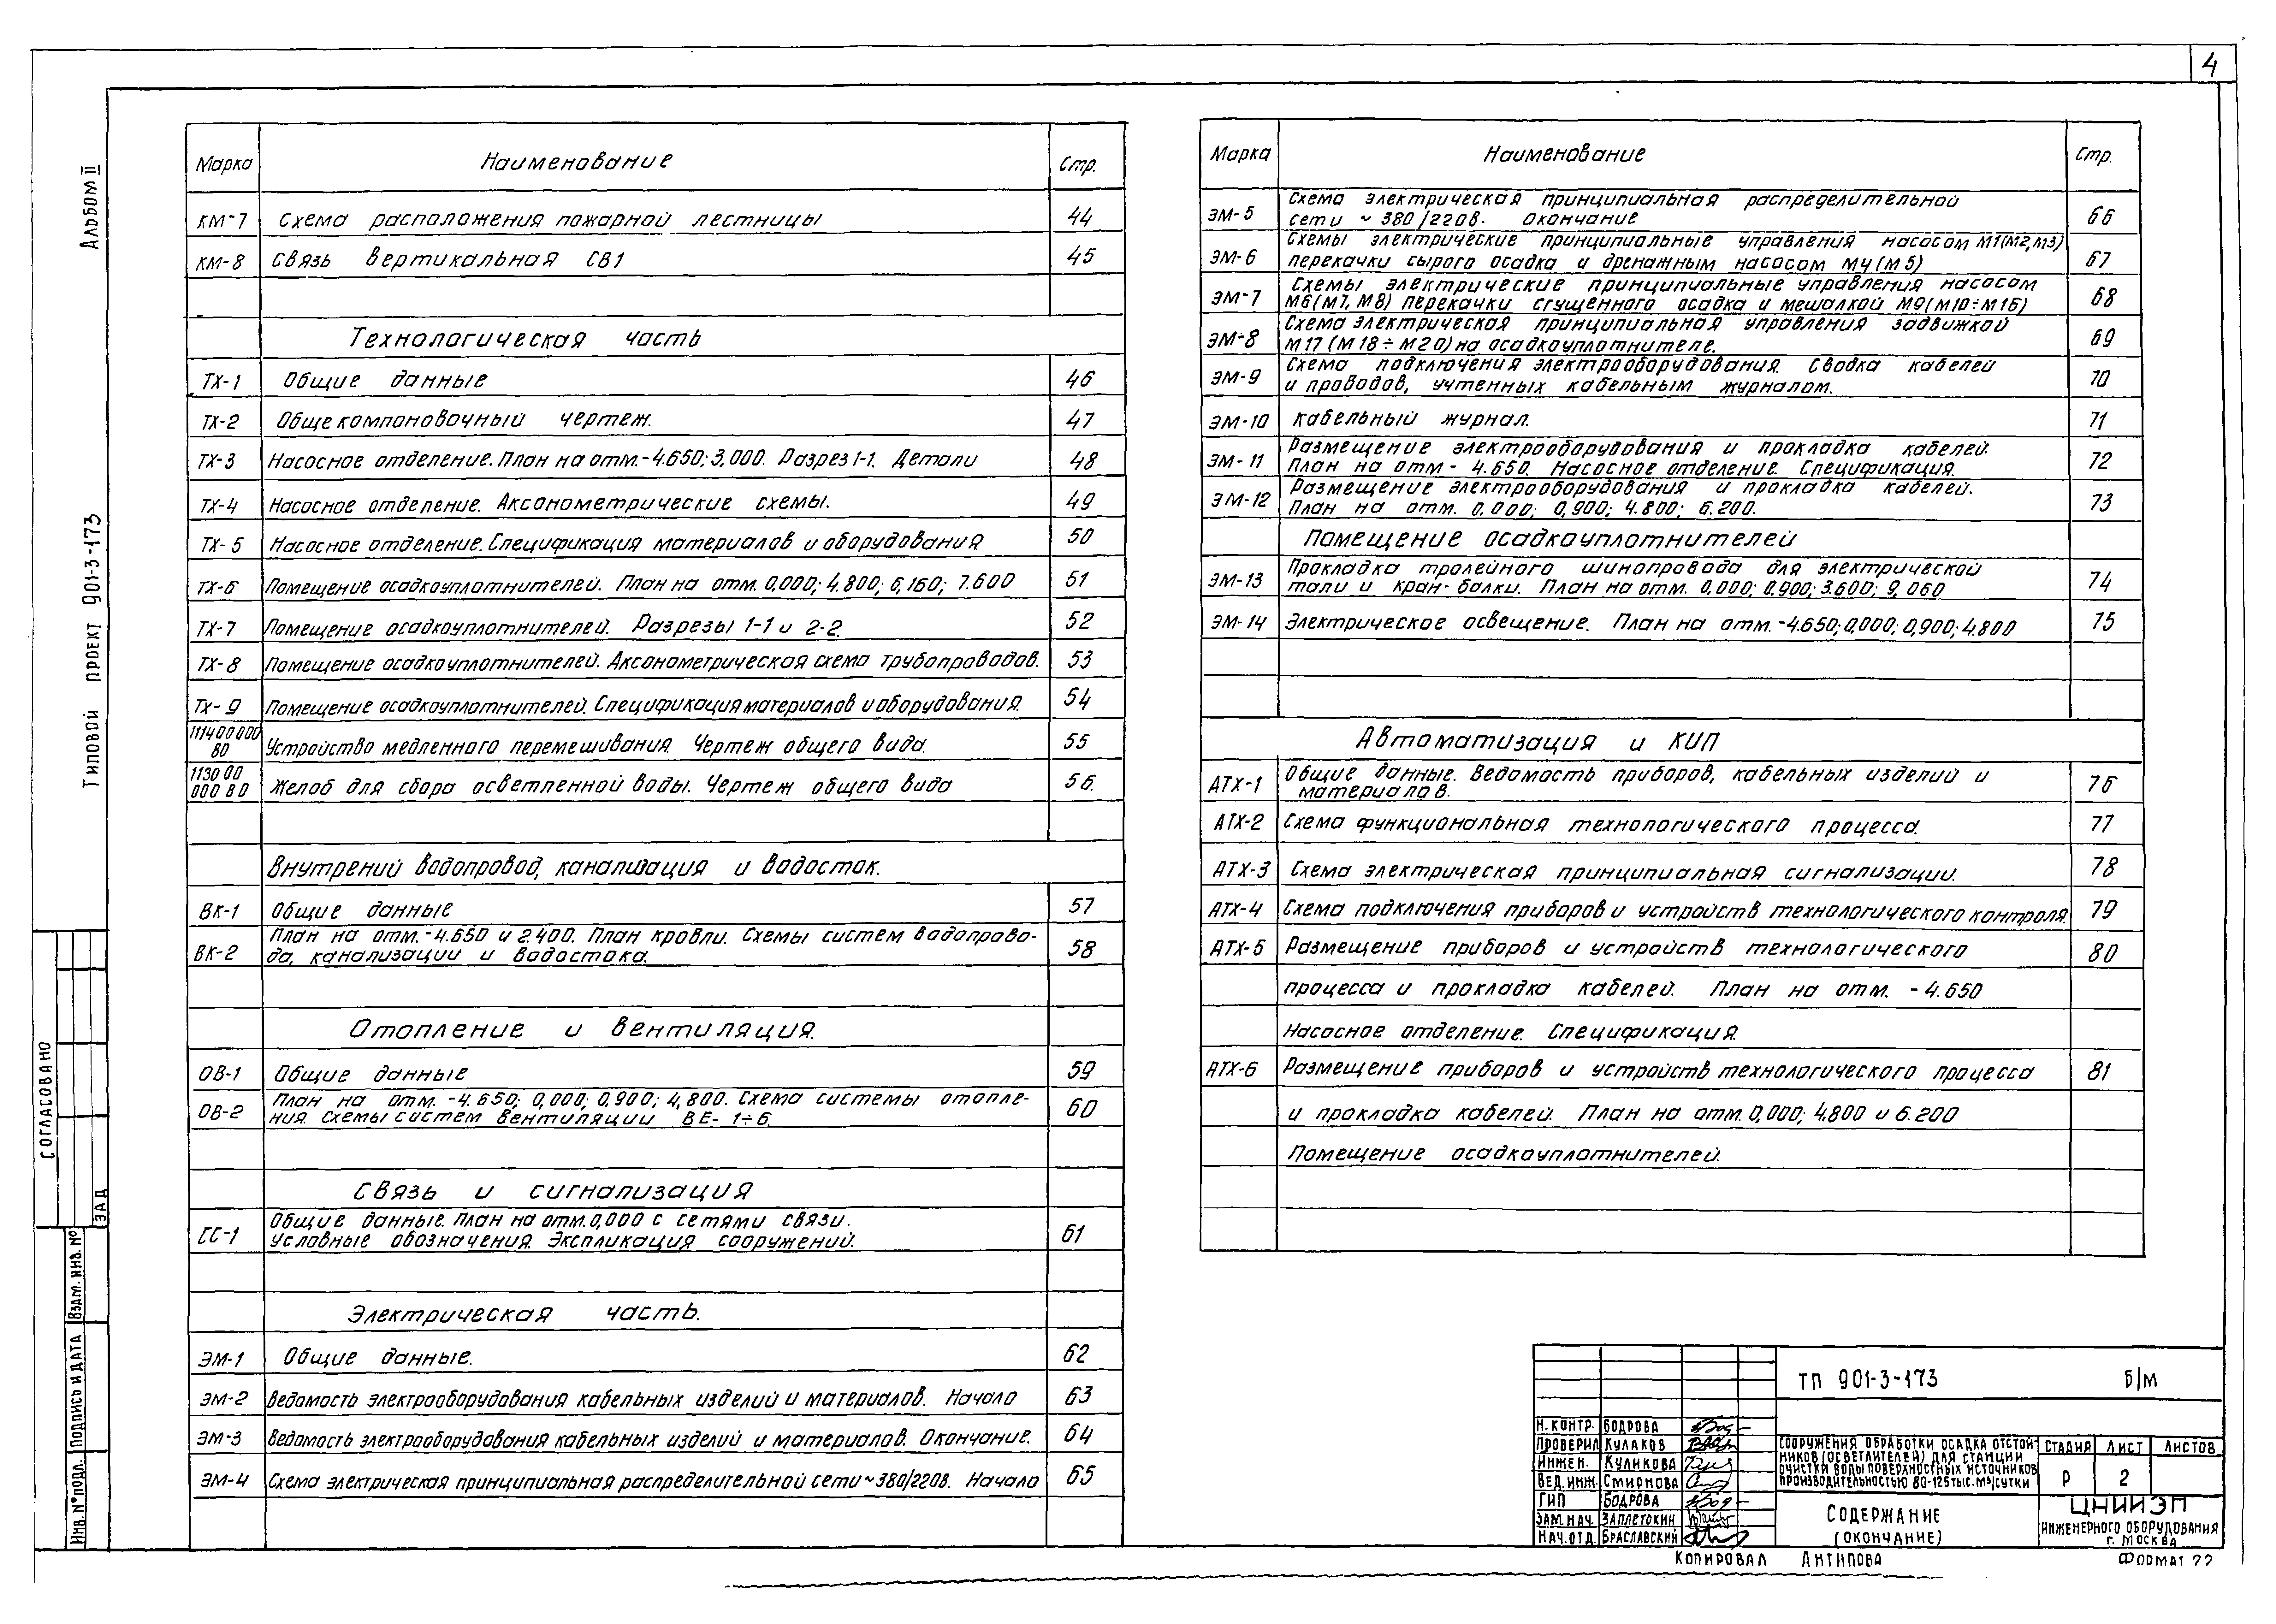 4
Альбом II
Типовой проект 901-3-173
Марка Наименование Стр.
КМ-7 Схема расположения пожарной лестницы 44
КМ-8 Связь вертикальная СВ1 45
Технологическая часть
ТХ-1 Общие данные 46
ТХ-2 Общекомпоновочный чертеж. 47
ТХ-3 Насосное отделение. План на отм. -4.650; 3,000. Разрез 1-1. Детали 48
ТХ-4 Насосное отделение. Аксонометрические схемы. 49
ТХ-5 Насосное отделение. Спецификация материалов и оборудования 50
ТХ-6 Помещение осадкоуплотнителей. План на отм. 0,000; 4.800; 6,160; 7.600 51
ТХ-7 Помещение осадкоуплотнителей. Разрезы 1-1 и 2-2. 52
ТХ-8 Помещение осадкоуплотнителей. Аксонометрическая схема трубопроводов. 53
ТХ-9 Помещение осадкоуплотнителей. Спецификация материалов и оборудования. 54
111400000
ВО Устройство медленного перемешивания. Чертеж общего вида. 55
113000
000 ВО Желоб для сбора осветленной воды. Чертеж общего вида 56.
Внутрений водопровод, канализация и водосток.
ВК-1 Общие данные 57
ВК-2 План на отм. -4.650 и 2.400. План кровли. Схемы систем водопрово-
да, канализации и водостока. 58
Отопление и вентиляция.
ОВ-1 Общие данные 59
ОВ-2 План на отм. -4.650; 0,000; 0,900; 4,800. Схема системы отопле-
ния. Схемы систем вентиляции ВЕ- 1÷6. 60
Связь и сигнализация
СС-1 Общие данные. План на отм. 0,000 с сетями связи.
Условные обозначения. Экспликация сооружений. 61
Электрическая часть.
ЭМ-1 Общие данные. 62
ЭМ-2 Ведомость электрооборудования кабельных изделий и материалов. Начало 63
ЭМ-3 Ведомость электрооборудования кабельных изделий и материалов. Окончание. 64
ЭМ-4 Схема электрическая принципиальная распределительной сети ~380/220в. Начало 65
Марка Наименование Стр.
ЭМ-5 Схема электрическая принципиальная распределительной
сети ~ 380/220в. Окончание 66
ЭМ-6 Схемы электрические принципиальные управления насосом М1(М2,М3)
перекачки сырого осадка и дренажным насосом М4(М5) 67
ЭМ-7 Схемы электрические принципиальные управления насосом
М6(М7, М8) перекачки сгущенного осадка и мешалкой М9(М10÷М16) 68
ЭМ-8 Схема электрическая принципиальная управления задвижкой
М17 (М18÷М20) на осадкоуплотнителе. 69
ЭМ-9 Схема подключения электрооборудования. Сводка кабелей
и проводов, учтенных кабельным журналом. 70
ЭМ-10 Кабельный журнал. 71
ЭМ-11 Размещение электрооборудования и прокладка кабелей.
План на отм - 4.650. Насосное отделение. Спецификация. 72
ЭМ-12 Размещение электрооборудования и прокладка кабелей.
План на отм. 0,000; 0,900; 4.800; 6.200. 73
Помещение осадкоуплотнителей
ЭМ-13 Прокладка тролейного шинопровода для электрической
тали и кран-балки. План на отм. 0,000; 0,900; 3.600; 9,060 74
ЭМ-14 Электрическое освещение. План на отм. -4.650; 0,000; 0,900; 4.800 75
Автоматизация и КИП
АТХ-1 Общие данные. Ведомость приборов, кабельных изделий и
материалов. 76
АТХ-2 Схема функциональная технологического процесса. 77
АТХ-3 Схема электрическая принципиальная сигнализации. 78
АТХ-4 Схема подключения приборов и устройств технологического контроля. 79
АТХ-5 Размещение приборов и устройств технологического 80
процесса и прокладка кабелей. План на отм. - 4.650
Насосное отделение. Спецификация.
АТХ-6 Размещение приборов и устройств технологического процесса 81
и прокладка кабелей. План на отм. 0,000; 4.800 и 6.200
Помещение осадкоуплотнителей.
Согласовано
ЗАД
Взам. инв. №
Подпись и дата
Инв. № подл.
ТП 901-3-173 б/м
Н. контр. Бодрова
Проверил Кулаков
Инжен. Куликова
Вед. инж. Смирнова
ГИП Бодрова
Зам. нач. Заплетохин
Нач. отд. Браславский
Сооружения обработки осадка отстой-
ников (осветлителей) для станции
очистки воды поверхностных источников
производительностью 80-125 тыс. м³/сутки
Стадия Лист Листов
Р 2
Содержание
(окончание)
ЦНИИЭП
инженерного оборудования
г. Москва
Копировал Антипова
Формат 22